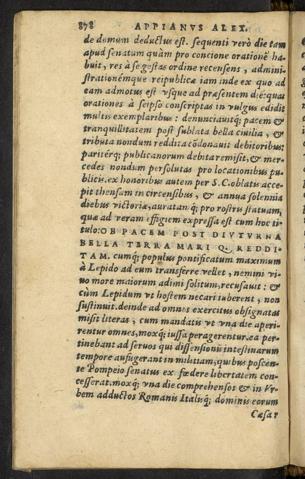 878 APPIANVS ALEX.
de domum deductus est. sequenti verò die tam
apud senatum quàm pro concione orationē ha-
buit, res à se gestas ordine recensens, admini-
strationémque reipublicæ iam inde ex quo ad
eam admotus est vsque ad præsentem diē: quas
orationes à seipso conscriptas in vulgus edidit
multis exemplaribus: denuntiauitq; pacem &
tranquillitatem post sublata bella ciuilia, &
tributa nondum reddita cōdonauit debitoribus:
paritérq; publicanorum debita remisit, & mer-
cedes nondum persolutas pro locationibus pu-
blicis. ex honoribus autem per S. C. oblatis acce-
pit thensam in circensibus, & annua solennia
diebus victoriæ, auratan q; pro rostris statuam,
quæ ad veram effigiem expressa est cum hoc ti-
tulo: OB PACEM POST DIVTVRNA
BELLA TERRA MARI Q. REDDI-
TAM. cumq; populus pontificatum maximum
à Lepido ad eum transferre vellet, nemini vi-
uo more maiorum adimi solitum, recusauit: &
cùm Lepidum vt hostem necari iuberent, non
sustinuit. deinde ad omnes exercitus obsignatas
misit literas, cum mandatis vt vna die aperi-
rentur omnes, moxq; iussa peragerentur. ea per-
tinebant ad seruos qui dissensionis intestinarum
tempore aufugerant in militiam, quibus poscen-
te Pompeio senatus ex fœdere libertatem con-
cesserat. moxq; vna die comprehensos & in Vr-
bem adductos Romanis Italisq; dominis eorum
Cæsar